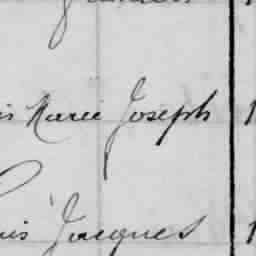 is Marie Joseph 1
uis Jacques 1